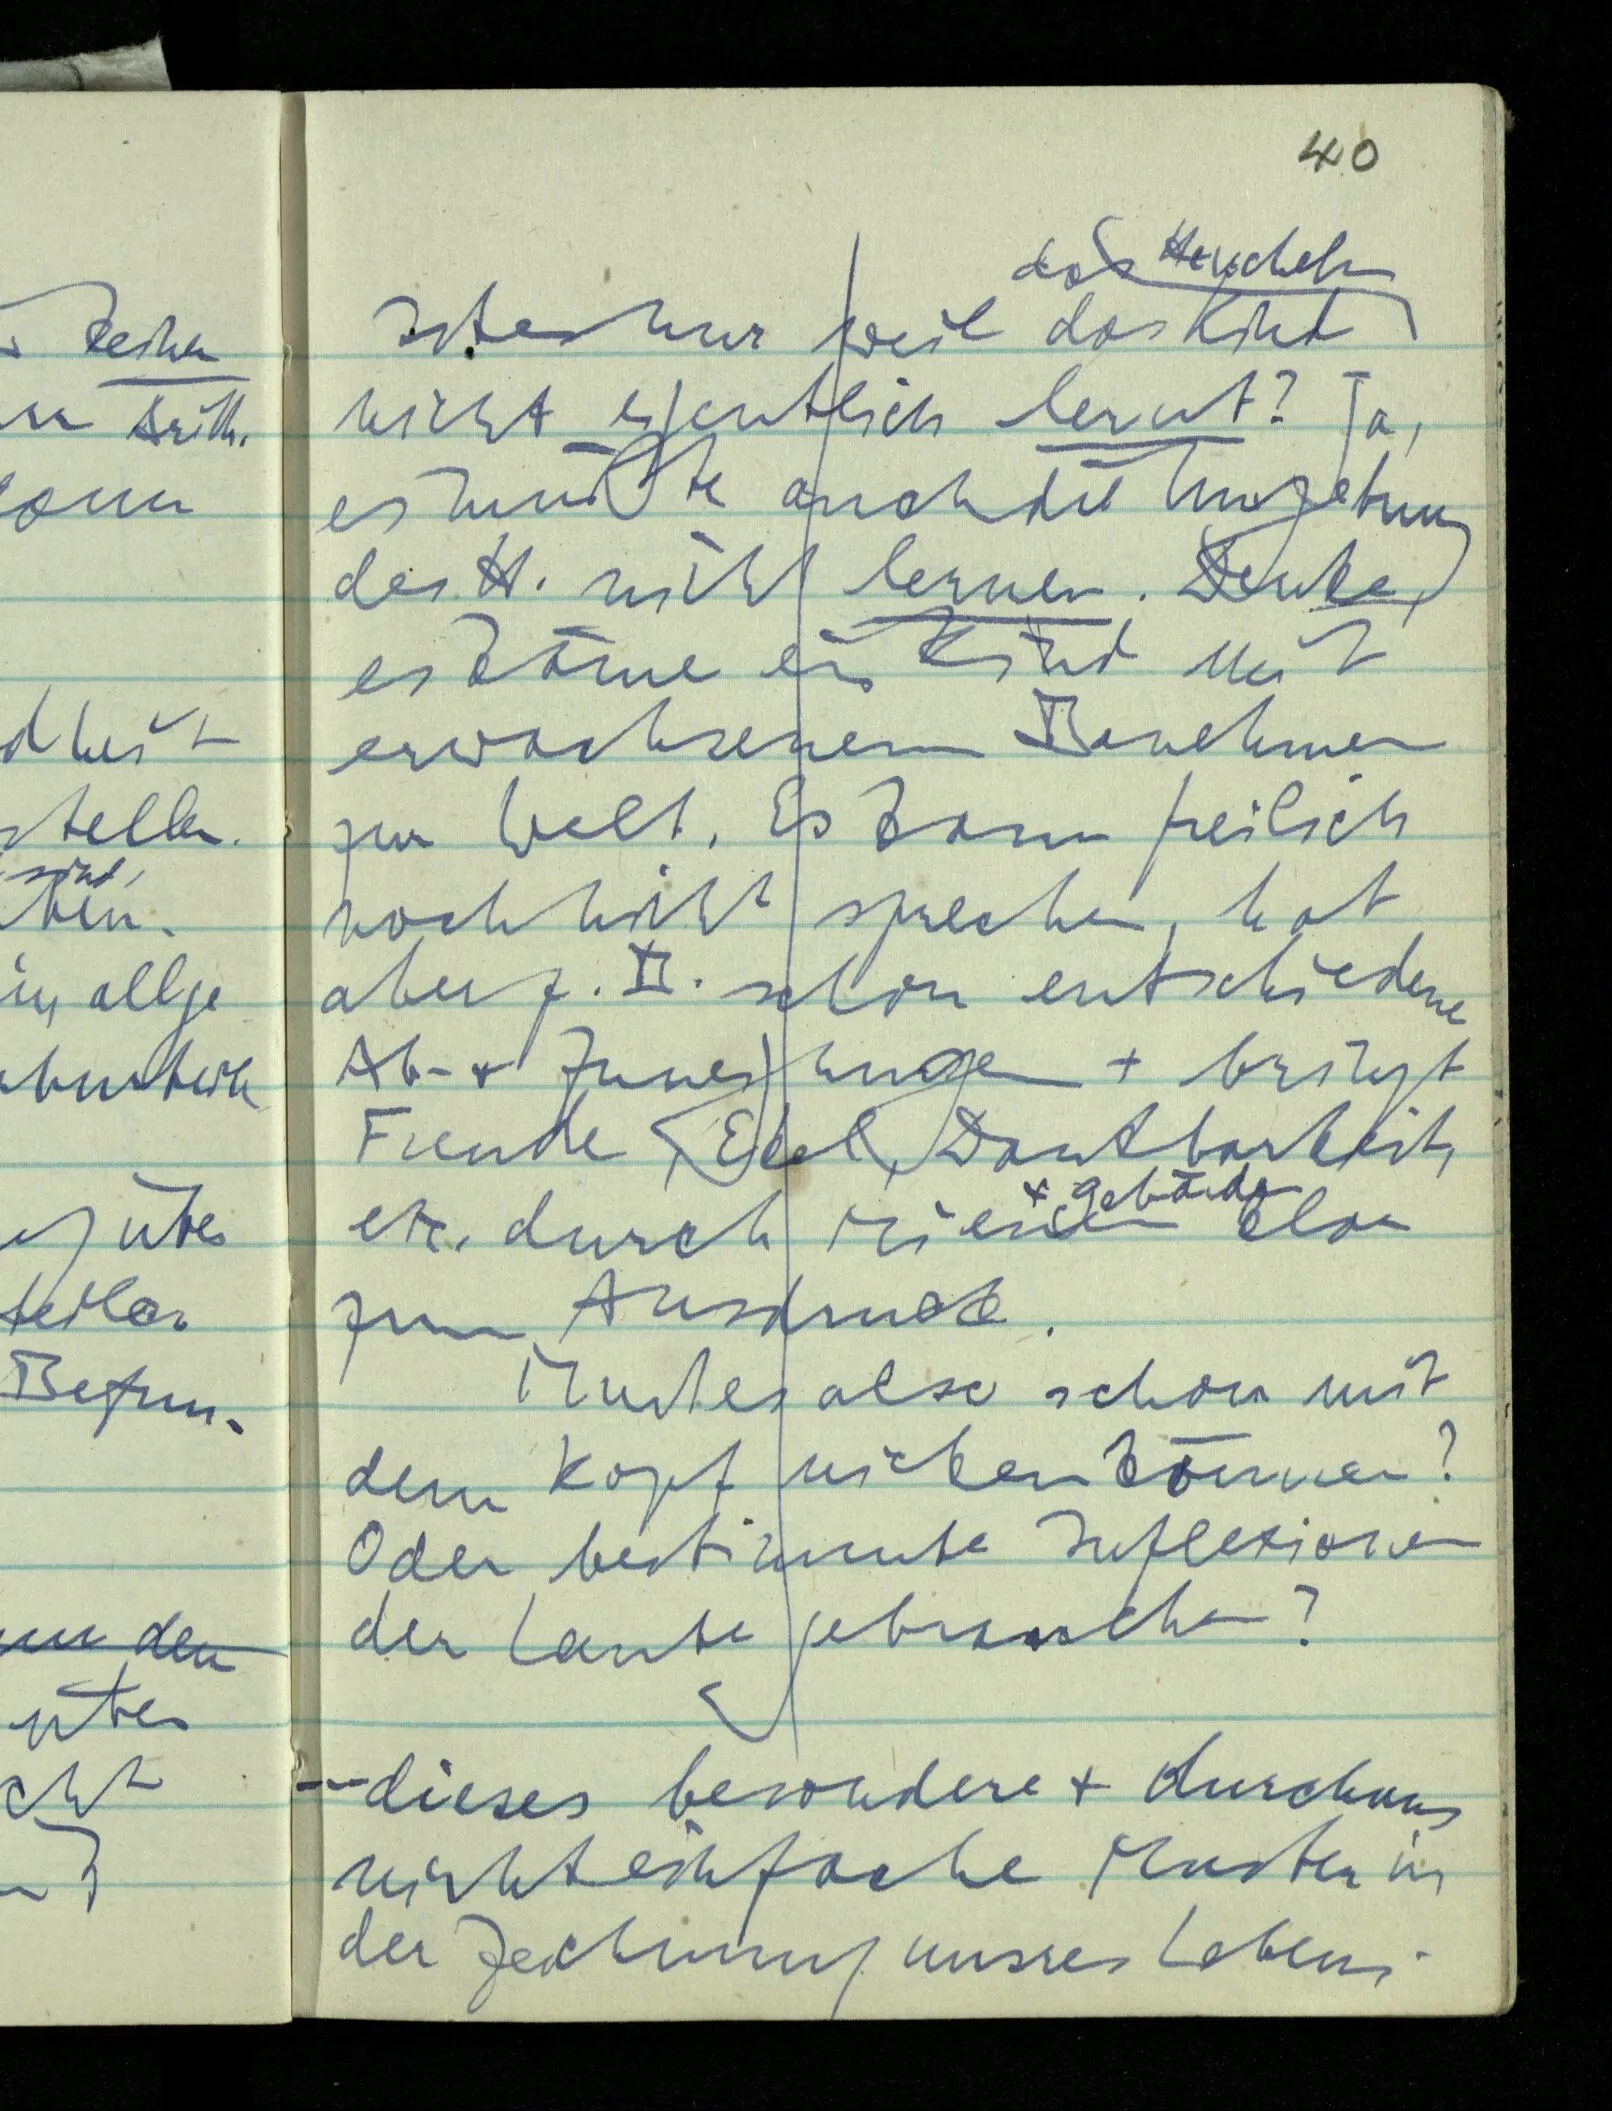 Reihen
40
das Heucheln
Ist es nur weil das Kind
nicht eigentlich lernt? Ja,
es müßte auch die Umgebung
des H. nicht lernen. Denke,
es käme ein Kind mit
erwachsenem Benehmen
zur Welt. Es kann freilich
noch nicht sprechen, hat
aber z. B. schon entschiedene
Ab- + Zuneigungen + bringt
Freude, Ekel, Dankbarkeit,
+ Gebärde
etc. durch Mienen klar
zum Ausdruck.
Muß es also schon mit
dem Kopf nicken können?
Oder bestimmte Inflexionen
der Laute gebrauchen?
– dieses besondere + durchaus
nicht einfache Muster in
der Zeichnung unsres Lebens.
stellen.
sind,
allge
über
den